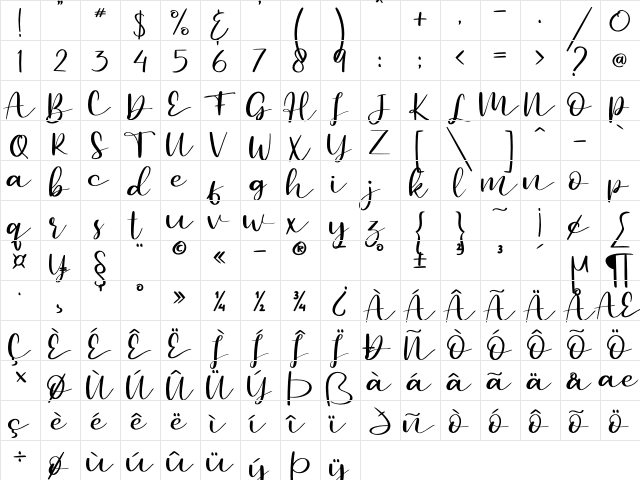 ! " # $ % & ' ( ) * + , - . / 0
1 2 3 4 5 6 7 8 9 : ; < = > ? @
A B C D E F G H I J K L M N O P
Q R S T U V W X Y Z [ \ ] ^ _ `
a b c d e f g h i j k l m n o p
q r s t u v w x y z { } ~ ¡ ¢ £
¤ ¥ § ¨ © « ® ¯ ° ± ² ³ ´ µ ¶
· ¸ º » ¼ ½ ¾ ¿ À Á Â Ã Ä Å Æ
Ç È É Ê Ë Ì Í Î Ï Ð Ñ Ò Ó Ô Õ Ö
× Ø Ù Ú Û Ü Ý Þ ß à á â ã ä å æ
ç è é ê ë ì í î ï ð ñ ò ó ô õ ö
÷ ø ù ú û ü ý þ ÿ